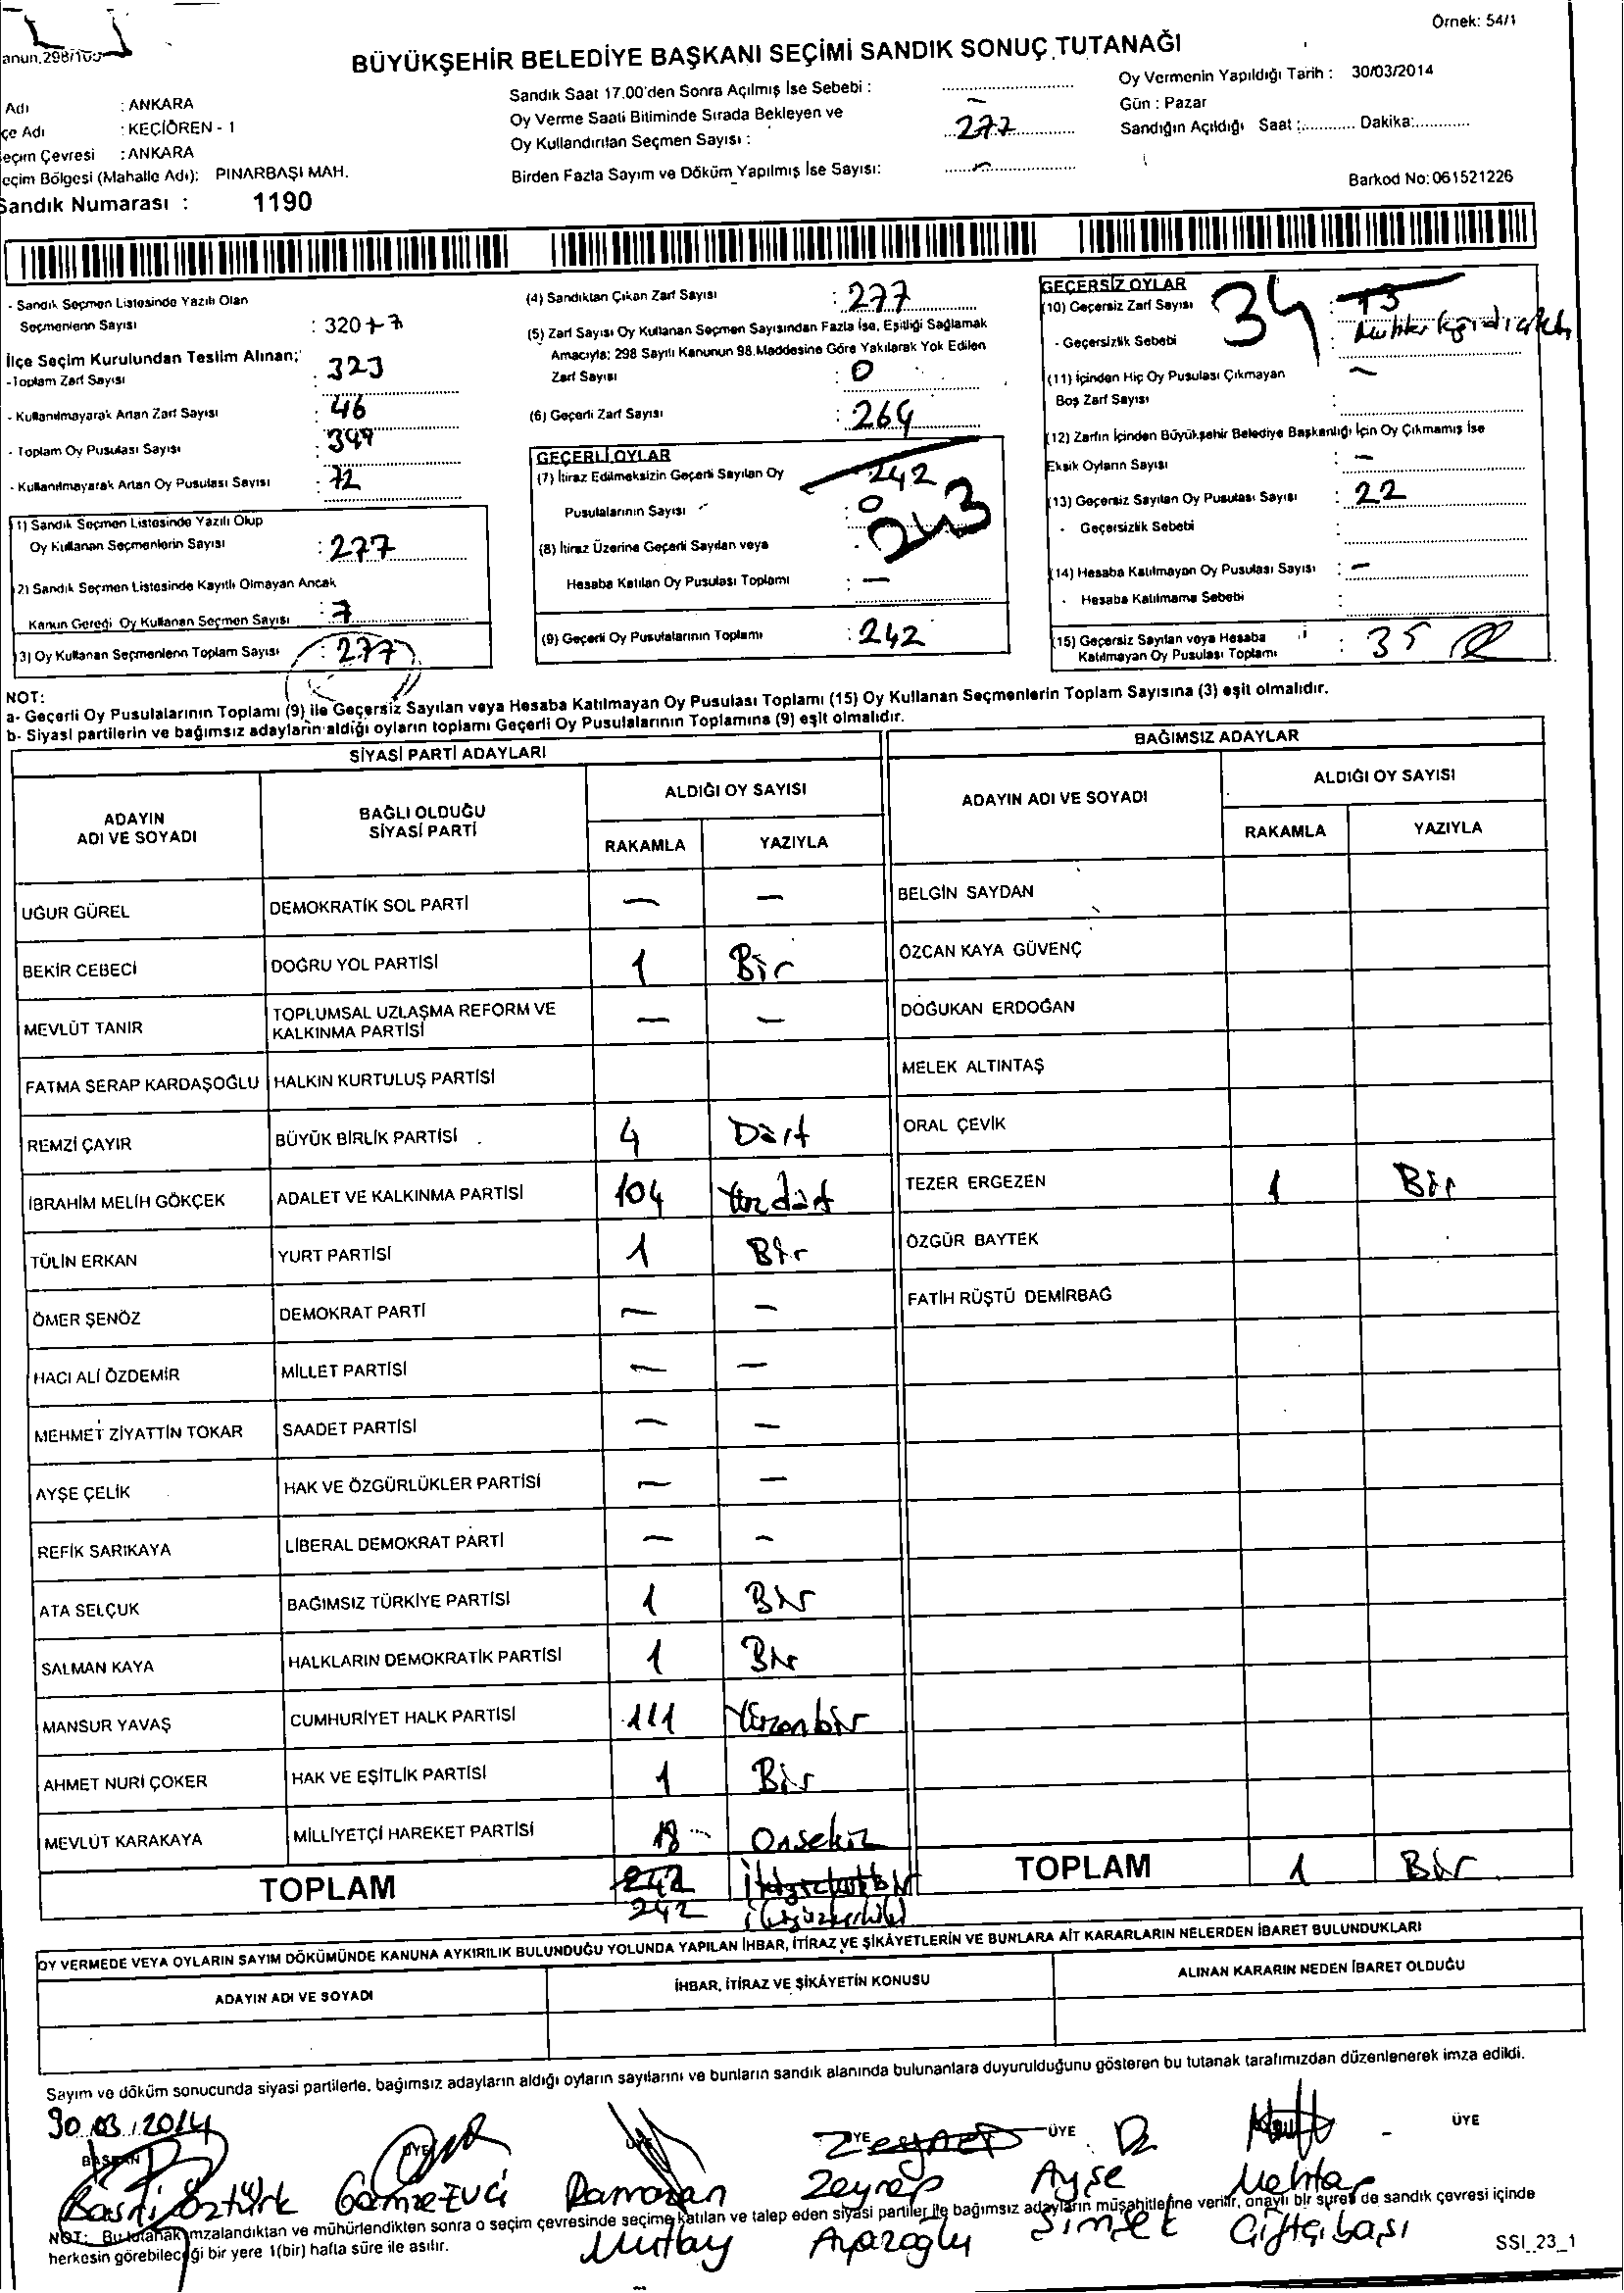 Örnek: 54/1
anun.298/105
BÜYÜKŞEHİR BELEDİYE BAŞKANI SEÇİMİ SANDIK SONUÇ TUTANAĞI
Adı : ANKARA
çe Adı : KEÇİÖREN - 1
eçim Çevresi : ANKARA
eçim Bölgesi (Mahalle Adı): PINARBAŞI MAH.
Sandık Numarası : 1190
Sandık Saat 17.00'den Sonra Açılmış İse Sebebi :
Oy Verme Saati Bitiminde Sırada Bekleyen ve
Oy Kullandırılan Seçmen Sayısı : 277
Birden Fazla Sayım ve Döküm Yapılmış İse Sayısı:
Oy Vermenin Yapıldığı Tarih : 30/03/2014
Gün : Pazar
Sandığın Açıldığı Saat :............ Dakika:............
Barkod No: 061521226
- Sandık Seçmen Listesinde Yazılı Olan
Seçmenlerin Sayısı : 320+7
İlçe Seçim Kurulundan Teslim Alınan;
-Toplam Zarf Sayısı : 323
- Kullanılmayarak Artan Zarf Sayısı : 46
- Toplam Oy Pusulası Sayısı : 349
- Kullanılmayarak Artan Oy Pusulası Sayısı : 72
1) Sandık Seçmen Listesinde Yazılı Olup
Oy Kullanan Seçmenlerin Sayısı : 277
2) Sandık Seçmen Listesinde Kayıtlı Olmayan Ancak
Kanun Gereği Oy Kullanan Seçmen Sayısı : 7
3) Oy Kullanan Seçmenlerin Toplam Sayısı : 277
(4) Sandıktan Çıkan Zarf Sayısı : 277
(5) Zarf Sayısı Oy Kullanan Seçmen Sayısından Fazla İse, Eşitliği Sağlamak
Amacıyla; 298 Sayılı Kanunun 98.Maddesine Göre Yakılarak Yok Edilen
Zarf Sayısı : 0
(6) Geçerli Zarf Sayısı : 264
GEÇERLİ OYLAR
(7) İtiraz Edilmeksizin Geçerli Sayılan Oy 242
Pusulalarının Sayısı : 0 243
(8) İtiraz Üzerine Geçerli Sayılan veya
Hesaba Katılan Oy Pusulası Toplamı : —
(9) Geçerli Oy Pusulalarının Toplamı : 242
GEÇERSİZ OYLAR
(10) Geçersiz Zarf Sayısı 34 : 13
- Geçersizlik Sebebi
(11) İçinden Hiç Oy Pusulası Çıkmayan —
Boş Zarf Sayısı :
(12) Zarfın İçinden Büyükşehir Belediye Başkanlığı İçin Oy Çıkmamış İse
Eksik Oyların Sayısı : —
(13) Geçersiz Sayılan Oy Pusulası Sayısı : 22
- Geçersizlik Sebebi :
(14) Hesaba Katılmayan Oy Pusulası Sayısı : —
- Hesaba Katılmama Sebebi :
(15) Geçersiz Sayılan veya Hesaba : 35
Katılmayan Oy Pusulası Toplamı
NOT:
a- Geçerli Oy Pusulalarının Toplamı (9) ile Geçersiz Sayılan veya Hesaba Katılmayan Oy Pusulası Toplamı (15) Oy Kullanan Seçmenlerin Toplam Sayısına (3) eşit olmalıdır.
b- Siyasi partilerin ve bağımsız adayların aldığı oyların toplamı Geçerli Oy Pusulalarının Toplamına (9) eşit olmalıdır.
SİYASİ PARTİ ADAYLARI
ADAYIN ADI VE SOYADI
BAĞLI OLDUĞU SİYASİ PARTİ
ALDIĞI OY SAYISI
RAKAMLA YAZIYLA
UĞUR GÜREL DEMOKRATİK SOL PARTİ — —
BEKİR CEBECİ DOĞRU YOL PARTİSİ 1 Bir
MEVLÜT TANIR TOPLUMSAL UZLAŞMA REFORM VE KALKINMA PARTİSİ — —
FATMA SERAP KARDAŞOĞLU HALKIN KURTULUŞ PARTİSİ
REMZİ ÇAYIR BÜYÜK BİRLİK PARTİSİ 4 Dört
İBRAHİM MELİH GÖKÇEK ADALET VE KALKINMA PARTİSİ 104 Yüzdört
TÜLİN ERKAN YURT PARTİSİ 1 Bir
ÖMER ŞENÖZ DEMOKRAT PARTİ — —
HACI ALİ ÖZDEMİR MİLLET PARTİSİ — —
MEHMET ZİYATTİN TOKAR SAADET PARTİSİ — —
AYŞE ÇELİK HAK VE ÖZGÜRLÜKLER PARTİSİ — —
REFİK SARIKAYA LİBERAL DEMOKRAT PARTİ — —
ATA SELÇUK BAĞIMSIZ TÜRKİYE PARTİSİ 1 Bir
SALMAN KAYA HALKLARIN DEMOKRATİK PARTİSİ 1 Bir
MANSUR YAVAŞ CUMHURİYET HALK PARTİSİ 111 Yüzonbir
AHMET NURİ ÇOKER HAK VE EŞİTLİK PARTİSİ 1 Bir
MEVLÜT KARAKAYA MİLLİYETÇİ HAREKET PARTİSİ 18 Onsekiz
TOPLAM 242
242 ikiyüzkırkiki
BAĞIMSIZ ADAYLAR
ADAYIN ADI VE SOYADI
ALDIĞI OY SAYISI
RAKAMLA YAZIYLA
BELGİN SAYDAN
ÖZCAN KAYA GÜVENÇ
DOĞUKAN ERDOĞAN
MELEK ALTINTAŞ
ORAL ÇEVİK
TEZER ERGEZEN 1 Bir
ÖZGÜR BAYTEK
FATİH RÜŞTÜ DEMİRBAĞ
TOPLAM 1 Bir
OY VERMEDE VEYA OYLARIN SAYIM DÖKÜMÜNDE KANUNA AYKIRILIK BULUNDUĞU YOLUNDA YAPILAN İHBAR, İTİRAZ VE ŞİKÂYETLERİN VE BUNLARA AİT KARARLARIN NELERDEN İBARET BULUNDUKLARI
ADAYIN ADI VE SOYADI İHBAR, İTİRAZ VE ŞİKÂYETİN KONUSU ALINAN KARARIN NEDEN İBARET OLDUĞU
Sayım ve döküm sonucunda siyasi partilerle, bağımsız adayların aldığı oyların sayılarını ve bunların sandık alanında bulunanlara duyurulduğunu gösteren bu tutanak tarafımızdan düzenlenerek imza edildi.
30.03.2014
BAŞKAN ÜYE ÜYE ÜYE ÜYE ÜYE
Zeynep
Öztürk Ramazan Zeynep Ayşe Mehtap
NOT: Bu tutanak imzalandıktan ve mühürlendikten sonra o seçim çevresinde seçime katılan ve talep eden siyasi partiler ile bağımsız adayların müşahitlerine verilir, onaylı bir sureti de sandık çevresi içinde
herkesin görebileceği bir yere 1(bir) hafta süre ile asılır.
Mutlay Ayazoğlu Şimşek Çiftçibaşı
SSI_23_1